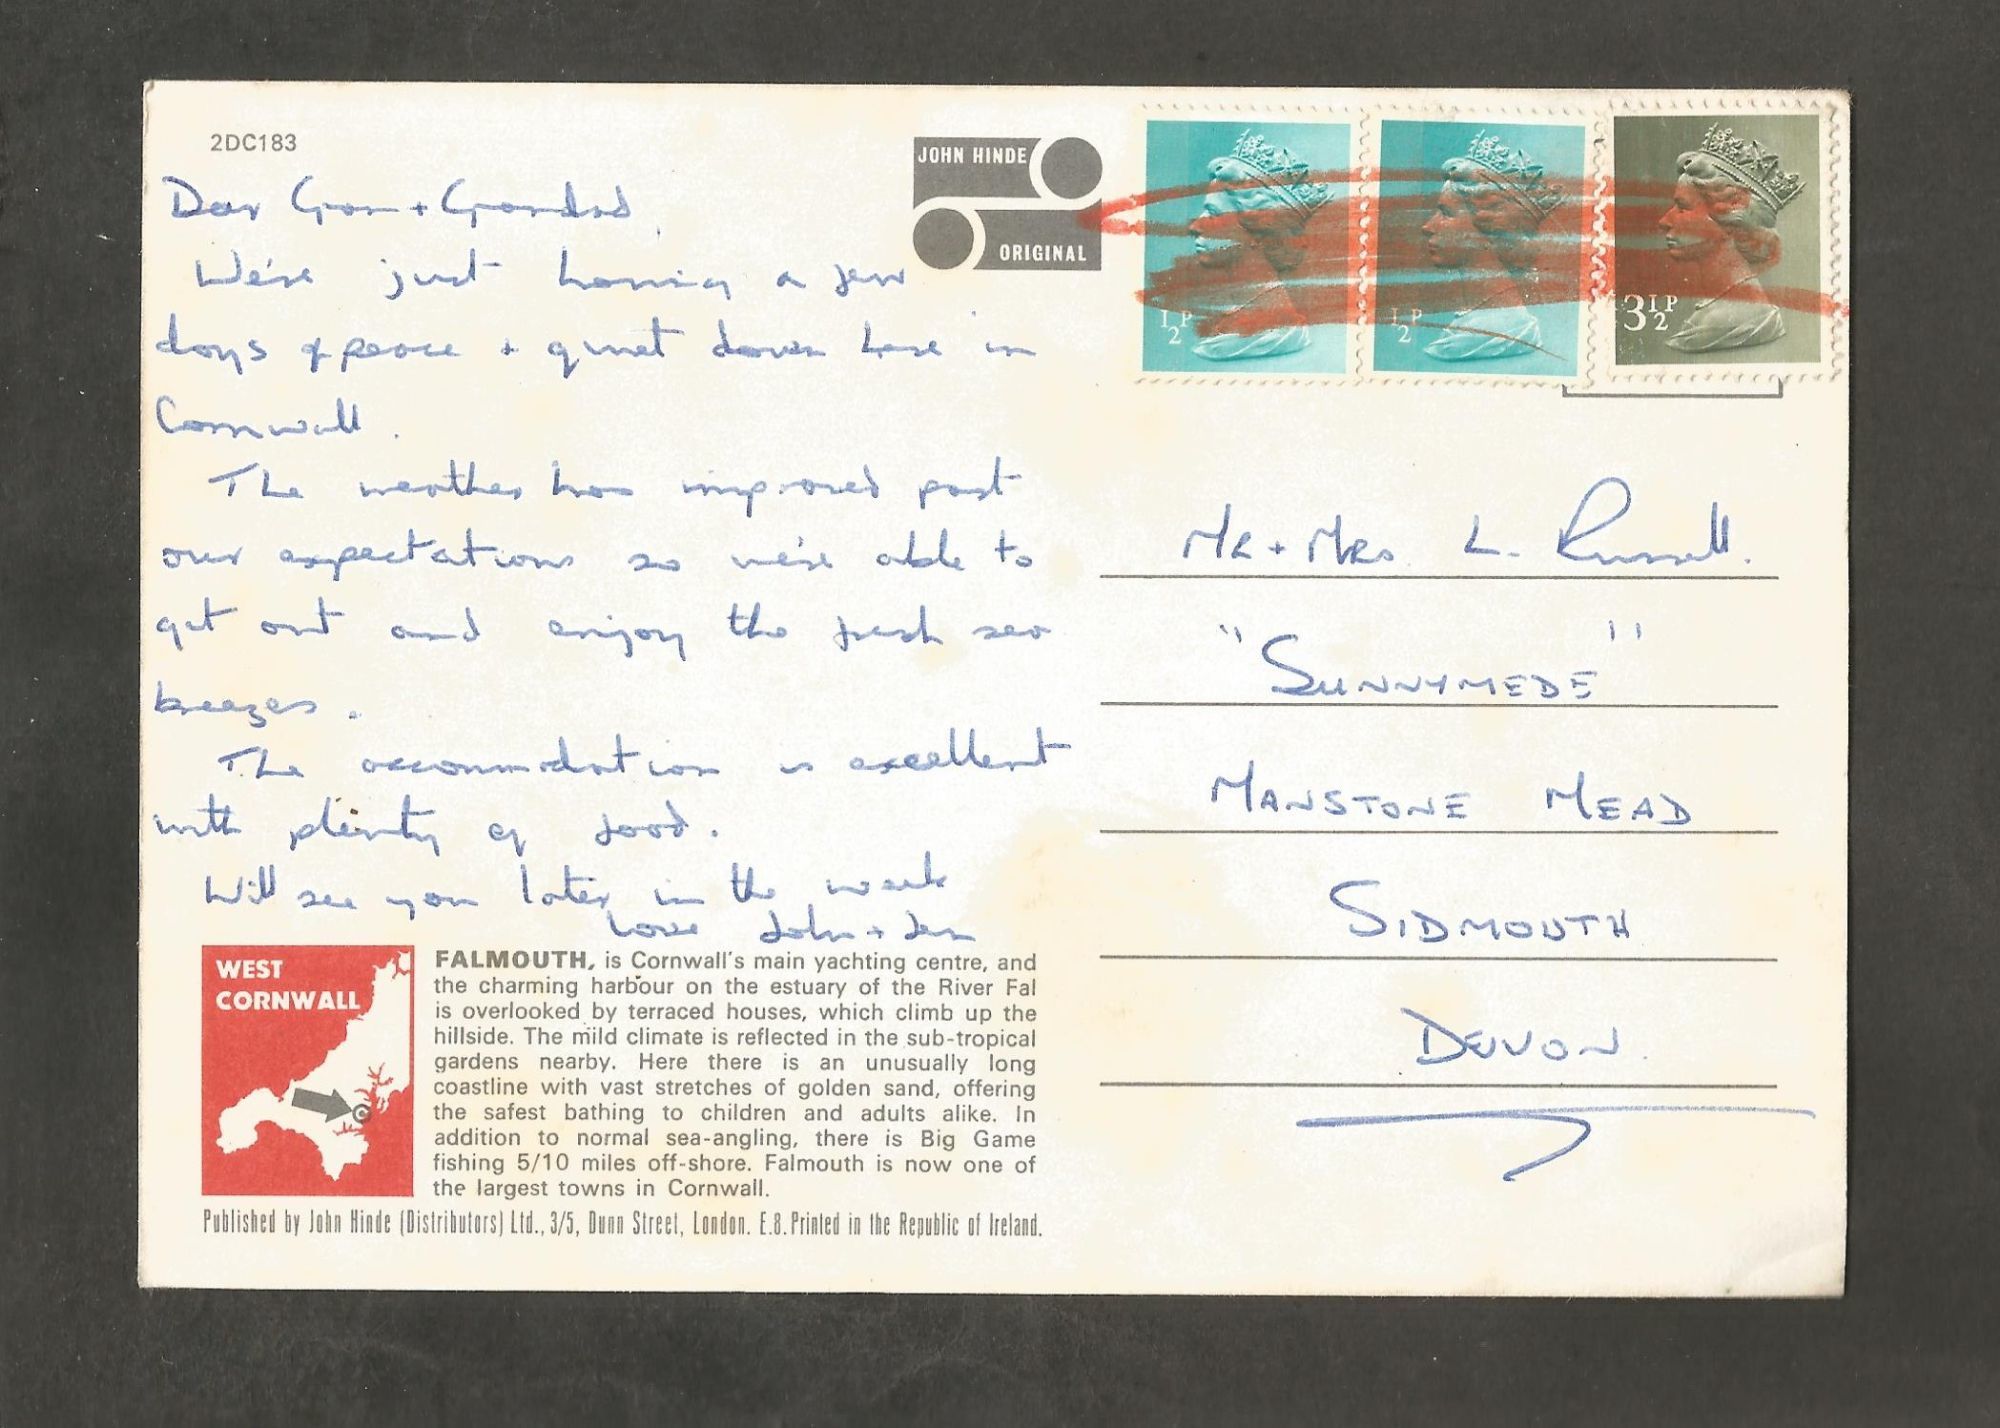 2DC183
JOHN HINDE
ORIGINAL
Dear Gran + Grandad,
We're just having a few
days of peace + quiet down here in
Cornwall.
The weather has improved past
our expectations so we're able to
get out and enjoy the fresh sea
breezes.
The accommodation is excellent
with plenty of food.
Will see you later in the week
Love John + Jen
½P
½P
3½P
Mr + Mrs L. Russell.
"SUNNYMEDE"
MANSTONE MEAD
SIDMOUTH
DEVON.
WEST
CORNWALL
FALMOUTH, is Cornwall's main yachting centre, and
the charming harbour on the estuary of the River Fal
is overlooked by terraced houses, which climb up the
hillside. The mild climate is reflected in the sub-tropical
gardens nearby. Here there is an unusually long
coastline with vast stretches of golden sand, offering
the safest bathing to children and adults alike. In
addition to normal sea-angling, there is Big Game
fishing 5/10 miles off-shore. Falmouth is now one of
the largest towns in Cornwall.
Published by John Hinde (Distributors) Ltd., 3/5, Dunn Street, London. E.8. Printed in the Republic of Ireland.